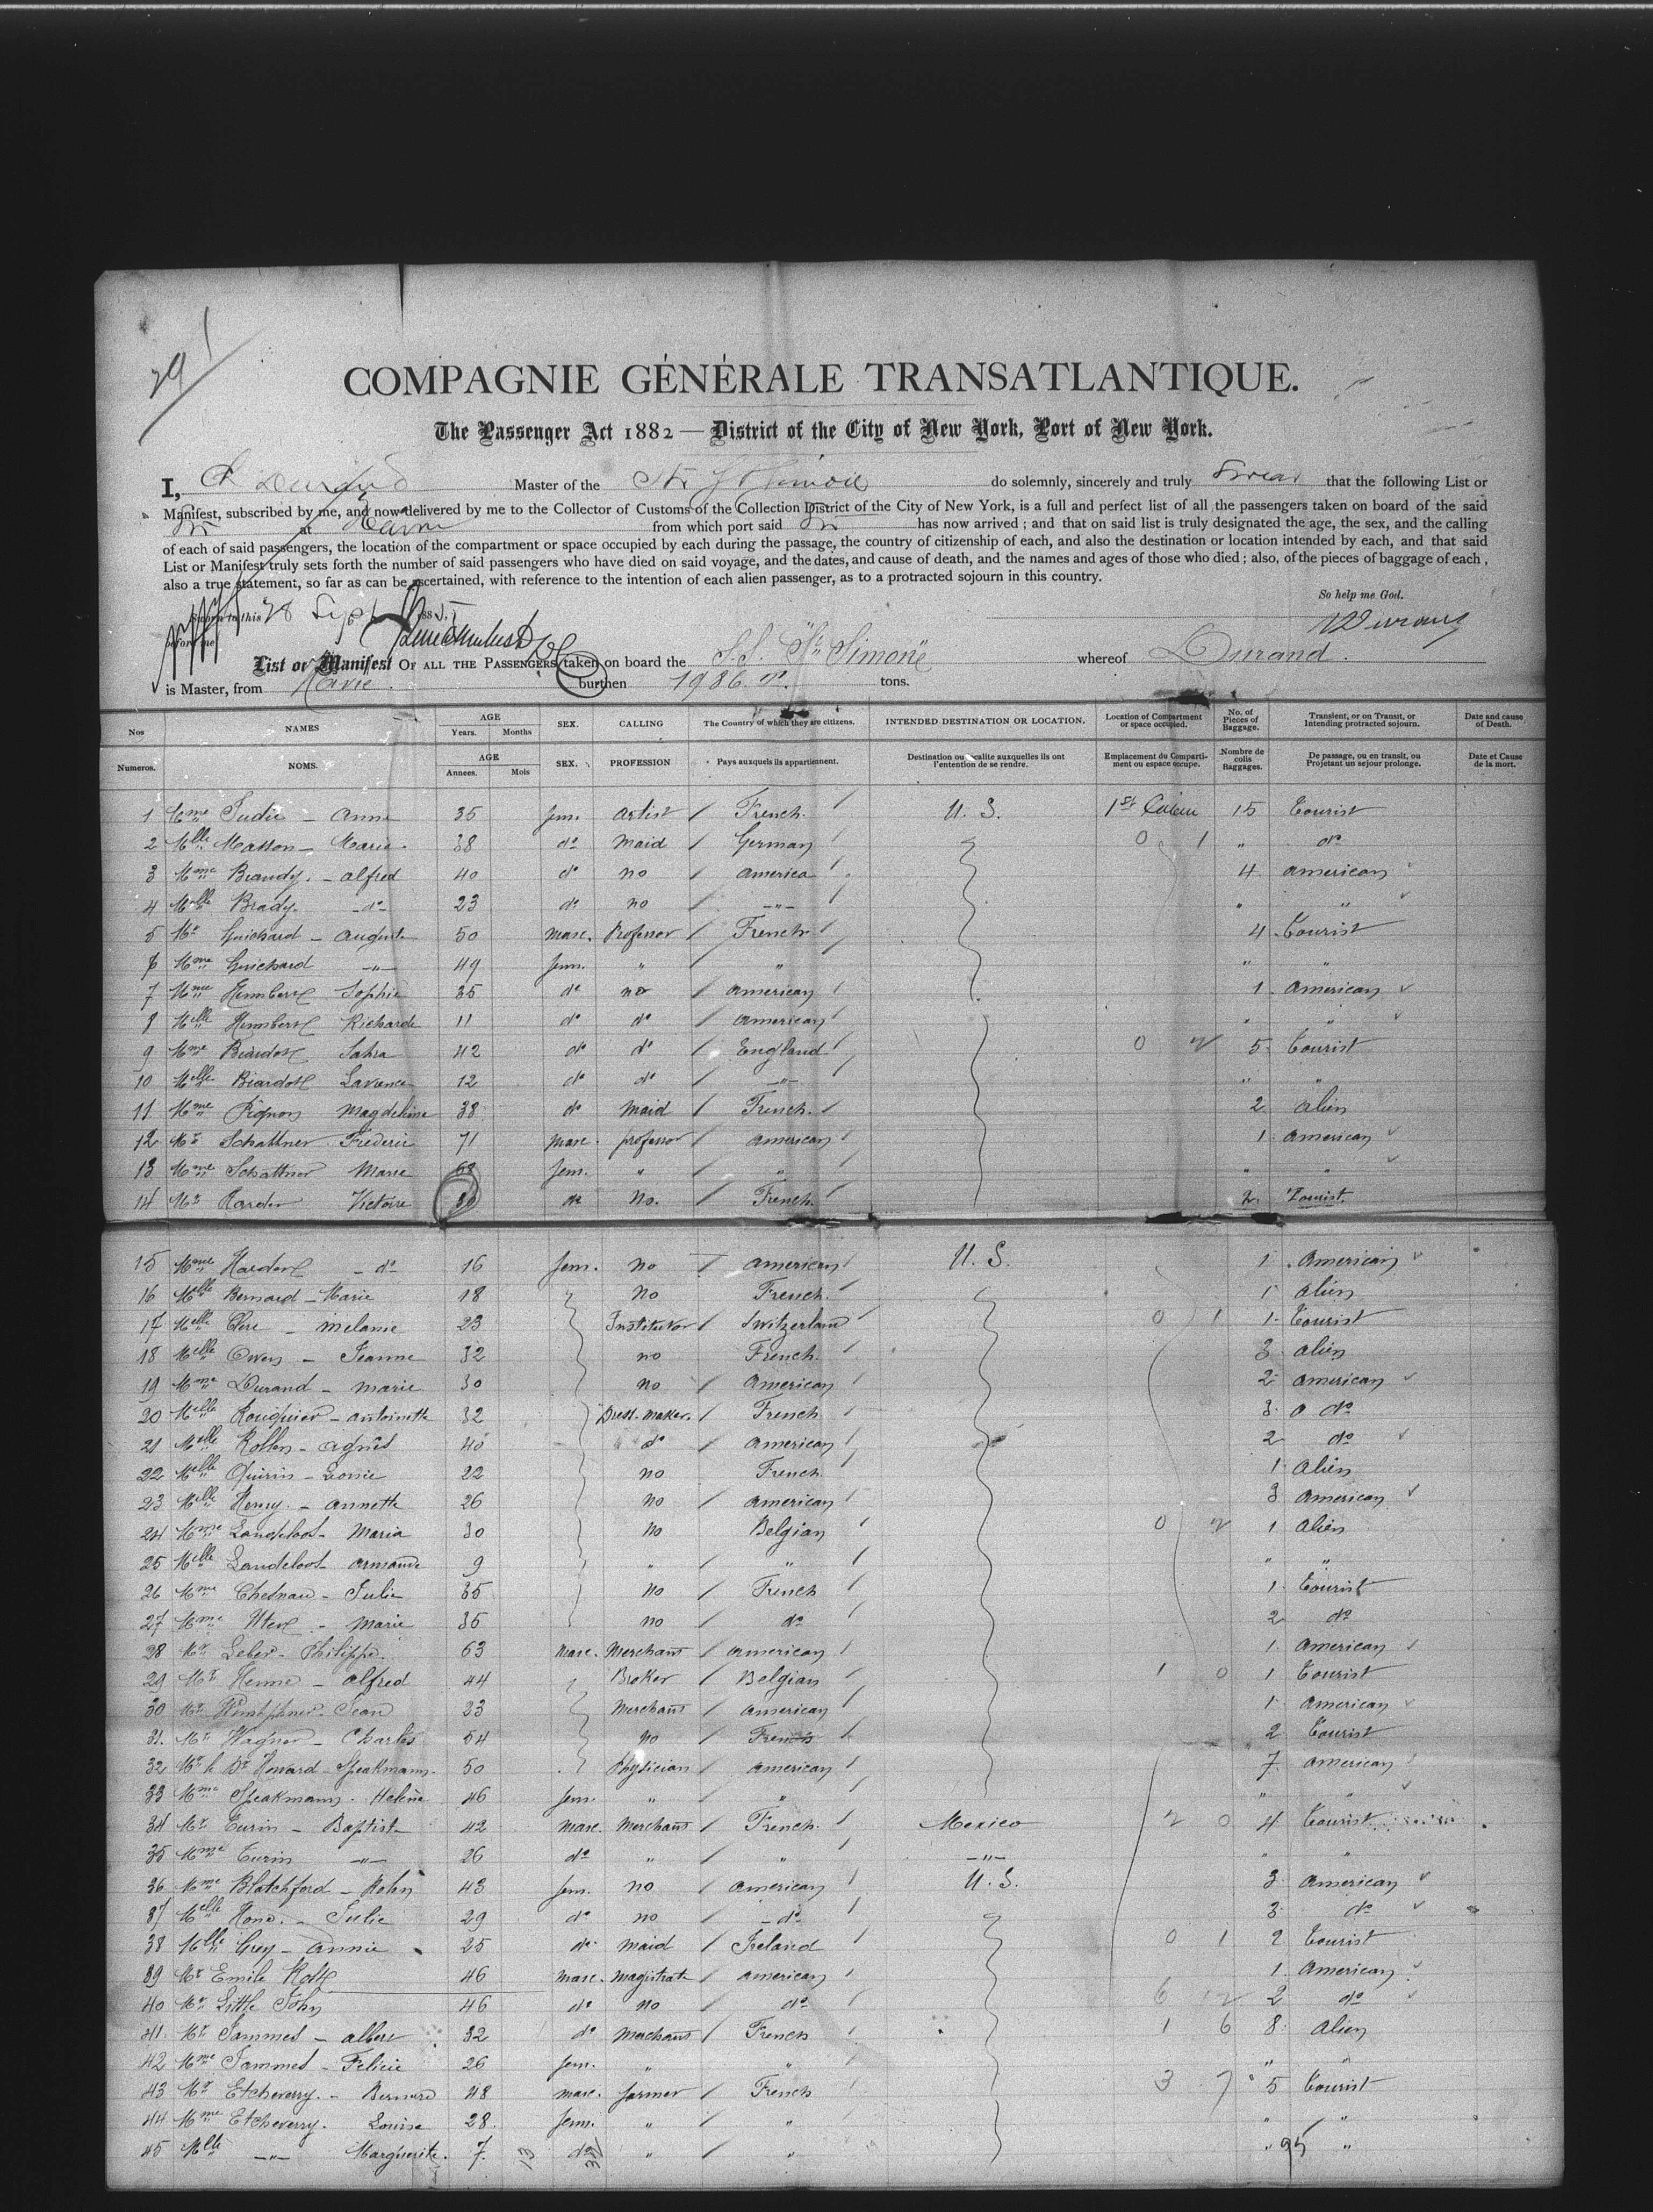 29
COMPAGNIE GÉNÉRALE TRANSATLANTIQUE.
The Passenger Act 1882 — District of the City of New York, Port of New York.
I, Durand Master of the Str St Simon do solemnly, sincerely and truly Swear that the following List or
Manifest, subscribed by me, and now delivered by me to the Collector of Customs of the Collection District of the City of New York, is a full and perfect list of all the passengers taken on board of the said
Str at Havre from which port said Str has now arrived ; and that on said list is truly designated the age, the sex, and the calling
of each of said passengers, the location of the compartment or space occupied by each during the passage, the country of citizenship of each, and also the destination or location intended by each, and that said
List or Manifest truly sets forth the number of said passengers who have died on said voyage, and the dates, and cause of death, and the names and ages of those who died ; also, of the pieces of baggage of each ,
also a true statement, so far as can be ascertained, with reference to the intention of each alien passenger, as to a protracted sojourn in this country.
So help me God.
Sworn to this 28 Sept 1885
before me Durand
List or Manifest OF ALL THE PASSENGERS taken on board the S.S. St Simon whereof Durand.
is Master, from Havre. burthen 1986 tons.
Nos NAMES AGE Years. Months SEX. CALLING The Country of which they are citizens. INTENDED DESTINATION OR LOCATION. Location of Compartment or space occupied. No. of Pieces of Baggage. Transient, or on Transit, or Intending protracted sojourn. Date and cause of Death.
Numeros. NOMS. AGE Annees. Mois SEX. PROFESSION Pays auxquels ils appartiennent. Destination ou localite auxquelles ils ont l'entention de se rendre. Emplacement du Comparti-ment ou espace occupe. Nombre de colis Baggages. De passage, ou en transit, ou Projetant un sejour prolonge. Date et Cause de la mort.
1 Mme Judic - Anna 35 fem. artist French. U. S. 1st Cabin 15 Tourist
2 Melle Masson - Maria 38 do maid German 0 1 " do
3 Mme Brandy - alfred 40 do no America 4 american
4 Melle Brady - do 23 do no -"- " "
5 Mr Guichard - August 50 masc. Professor French 4 Tourist
6 Mme Guichard -"- 49 fem. " " " "
7 Mme Humbert Sophie 35 do no american 1 American
8 Melle Humbert Richarde 11 do do american " "
9 Mme Biardot Sahra 42 do do England 0 2 5 Tourist
10 Melle Biardot Lavence 12 do do -"- " "
11 Mme Pignon Magdeleine 38 do maid French 2 alien
12 Mr Schattner Frederic 71 masc. professor american 1 american
13 Mme Schattner Marie 63 fem. " " " "
14 Mr Harder Victoire 30 do No. French 2 Tourist.
15 Mme Hardert - do 16 fem. no american U. S. 1 American
16 Melle Bernard - Marie 18 no French. 1 alien
17 Melle Clere - melanie 23 Institutor Switzerland 0 1 1 Tourist
18 Melle Owen - Jeanne 32 no French. 3 alien
19 Mme Durand - marie 30 no American 2 american
20 Melle Rouquier - antoinette 32 Dress-maker. French 3 do
21 Melle Rollen - agnès 40 do american 2 do
22 Melle Quirin - Leonie 22 no French 1 alien
23 Melle Henry - annette 26 no american 3 american
24 Mme Landeloos - Maria 30 no Belgian 0 2 1 alien
25 Melle Landeloos - armande 9 " " " "
26 Mme Chesnau - Julie 35 no French 1 Tourist
27 Mme - marie 35 no do 2 do
28 Mr Leber - Philippe. 63 masc. Merchant american 1 American
29 Mr Henne - alfred 44 Broker Belgian 1 0 1 Tourist
30 Mr - Jean 23 merchant american 1 american
31. Mr Wagner - Charles 54 no French 2 Tourist
32 Mr Howard - Speakmann 50 Physician american 7 american
33 Mme Speakmann - Helene 46 fem. " " " "
34 Mr Turin - Baptist 42 masc. merchant French Mexico 2 0 4 Tourist
35 Mme Turin -"- 26 do " " -"- " "
36 Mme Blatchford - John 43 fem. no american U. S. 3 american
37 Melle - Julie 29 do no - do 3 do
38 Melle Grey - annie 25 do maid Ireland 0 1 2 Tourist
39 Mr Emile 46 masc. magistrate american 1 American
40 Mr Little John 46 do no do 6 2 2 do
41 Mr Jammes - albert 32 do merchant French 1 6 8 Alien
42 Mme Jammes - Felicie 26 fem. " " " "
43 Mr Etcheverry - Bernard 48 masc. farmer French 3 7 5 Tourist
44 Mme Etcheverry - Louise 28 fem. " " " "
45 Melle -"- Marguerite 7 13 do 32 " " " 95 "